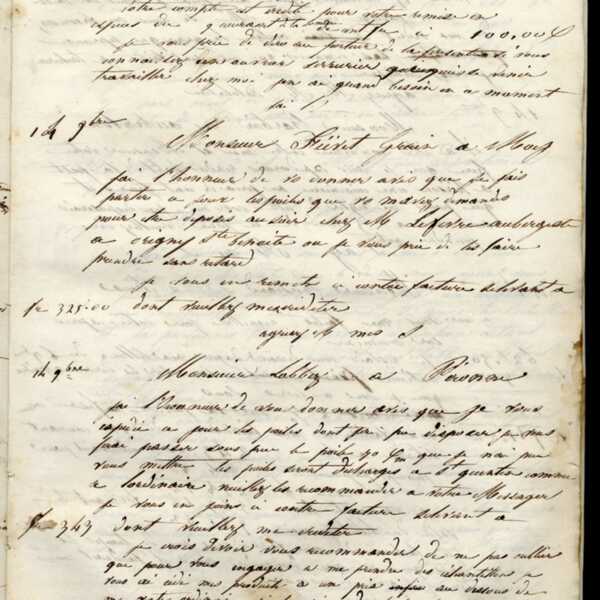 votre compte est crédité pour votre remise en
à 100,00
je vous prie de dire au porteur de la présente si vous
connaissez un ouvrier serrurier qui puisse venir
travailler chez moi j'en ai quand besoin en ce moment
14 9bre
Monsieur Fièvet Grain a
jai lhonneur de vo donner avis que je fais
partir a jour les poiles que vo mavez demandés
pour être déposés au soir chez M Lefevre aubergiste
a origny Ste benoite ou je vous prie de les faire
prendre sans retard
je vous en remets ci contre facture selevant a
fr 325.00 dont veuillez me créditer
agréez M mes S
14 9bre
Monsieur Labbez a Péronne
jai lhonneur de vous donner avis que je vous
expédie a jour les poiles dont jai pu disposer je vous
ferai passer sous peu le poile que je nai pu
vous mettre les poiles seront déchargés a St quentin comme
a lordinaire veuillez les recommander a votre Messager
je vous en joins ci contre facture selevant a
fr 343 dont veuillez me créditer
je crois devoir vous recommander de ne pas oublier
que pour vous engager a me prendre des échantillons je
vous ai cédé mes produits a un prix au dessous de